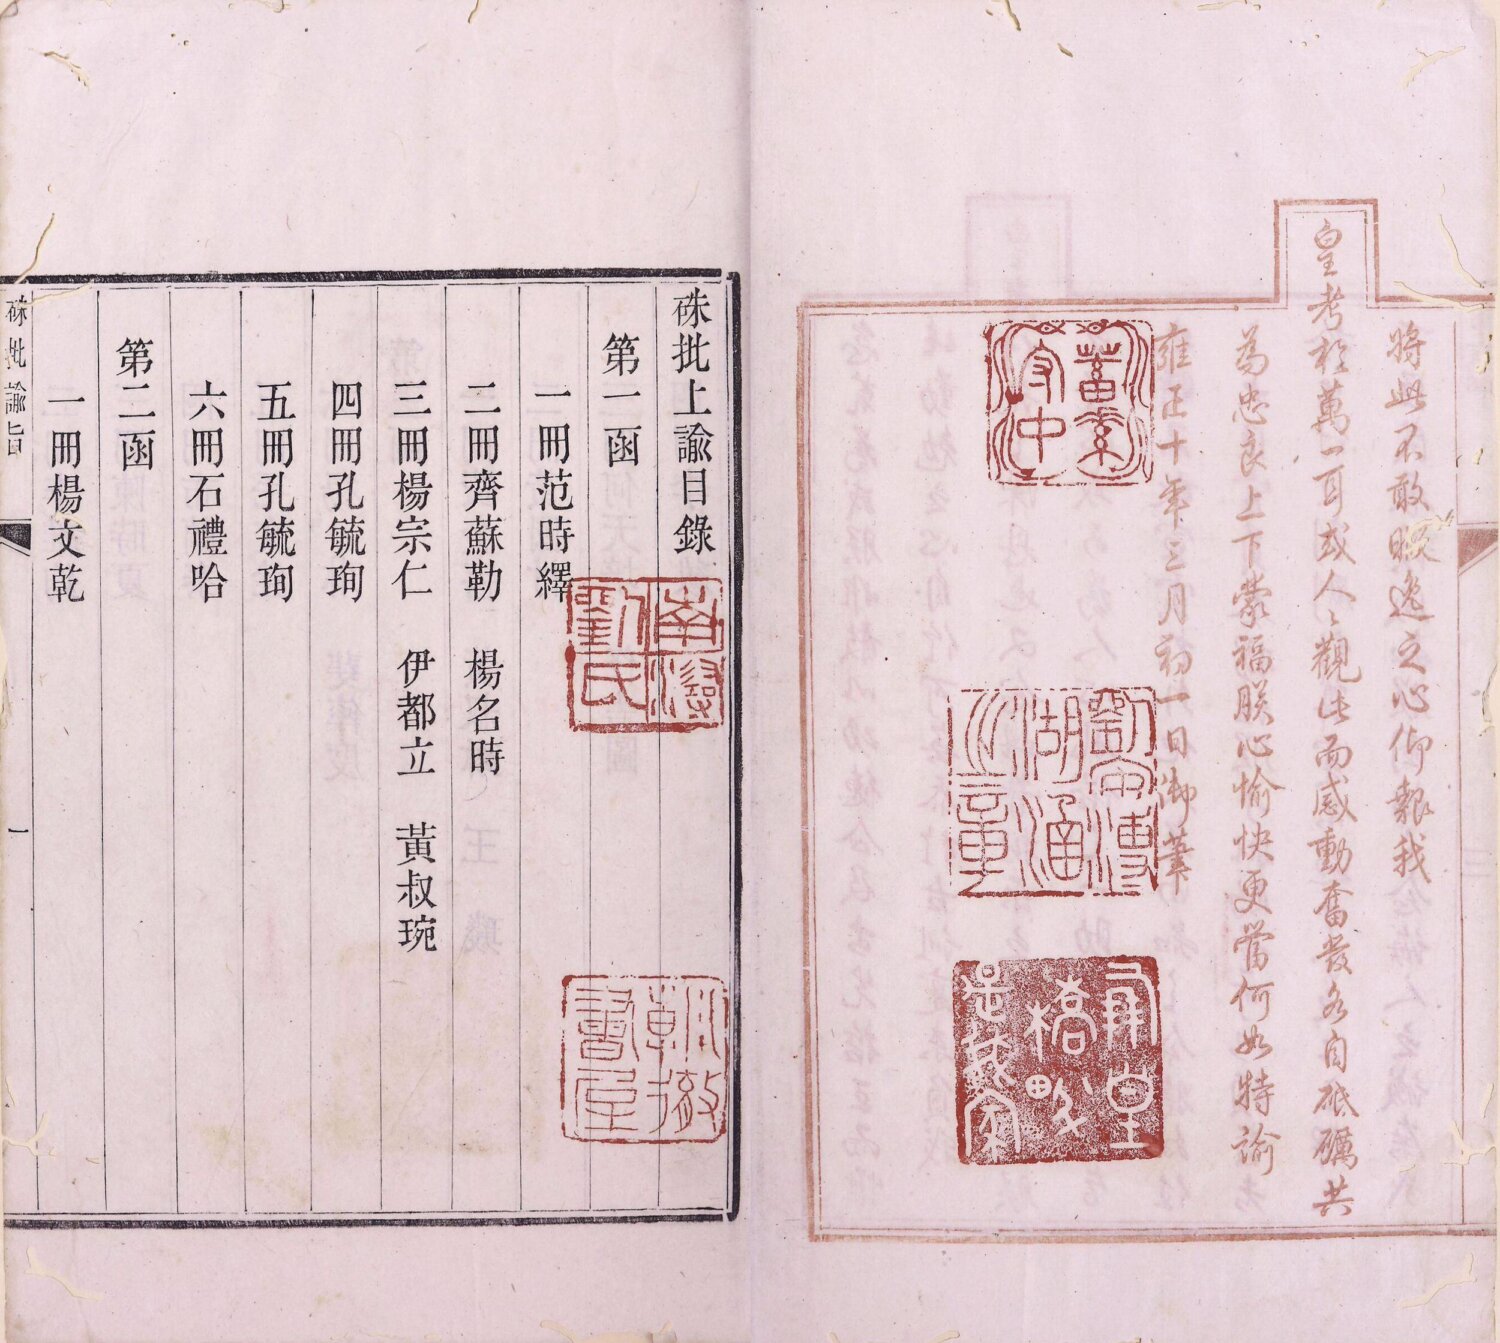 將此不敢暇逸之心仰報我
皇考於萬一耳或人人觀此而感動奮發各自砥礪共
為忠良上下蒙福朕心愉快更當何如特諭
雍正十年三月初一日御筆
蓄素守中
硃批上諭目錄
第一函
一冊范時繹
二冊齊蘇勒 楊名時
三冊楊宗仁 伊都立 黃叔琬
四冊孔毓珣
五冊孔毓珣
六冊石禮哈
第二函
一冊楊文乾
硃批諭旨
一
劉氏
書屋